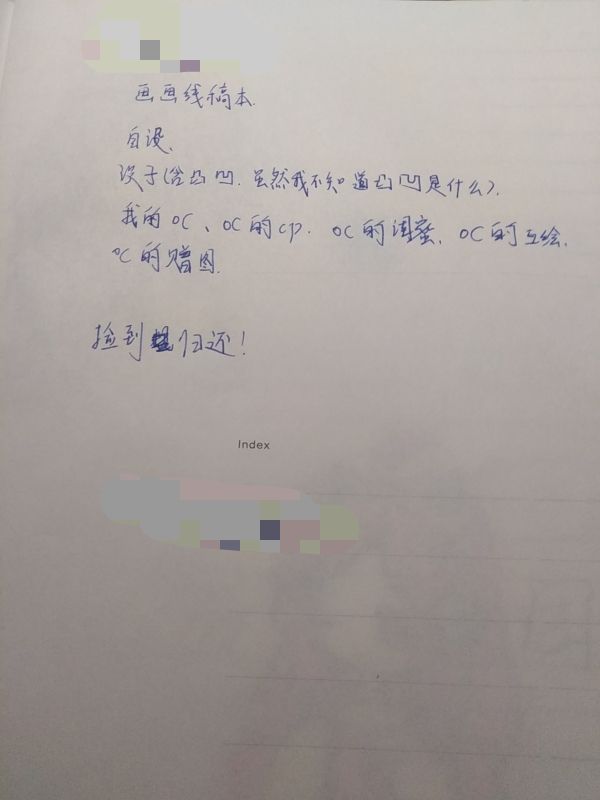 画画线稿本.
自设.
设子(含凸凹.虽然我不知道凸凹是什么).
我的OC、OC的cp. OC的闺蜜、OC的互绘.
OC的赠图.
捡到归还!
Index